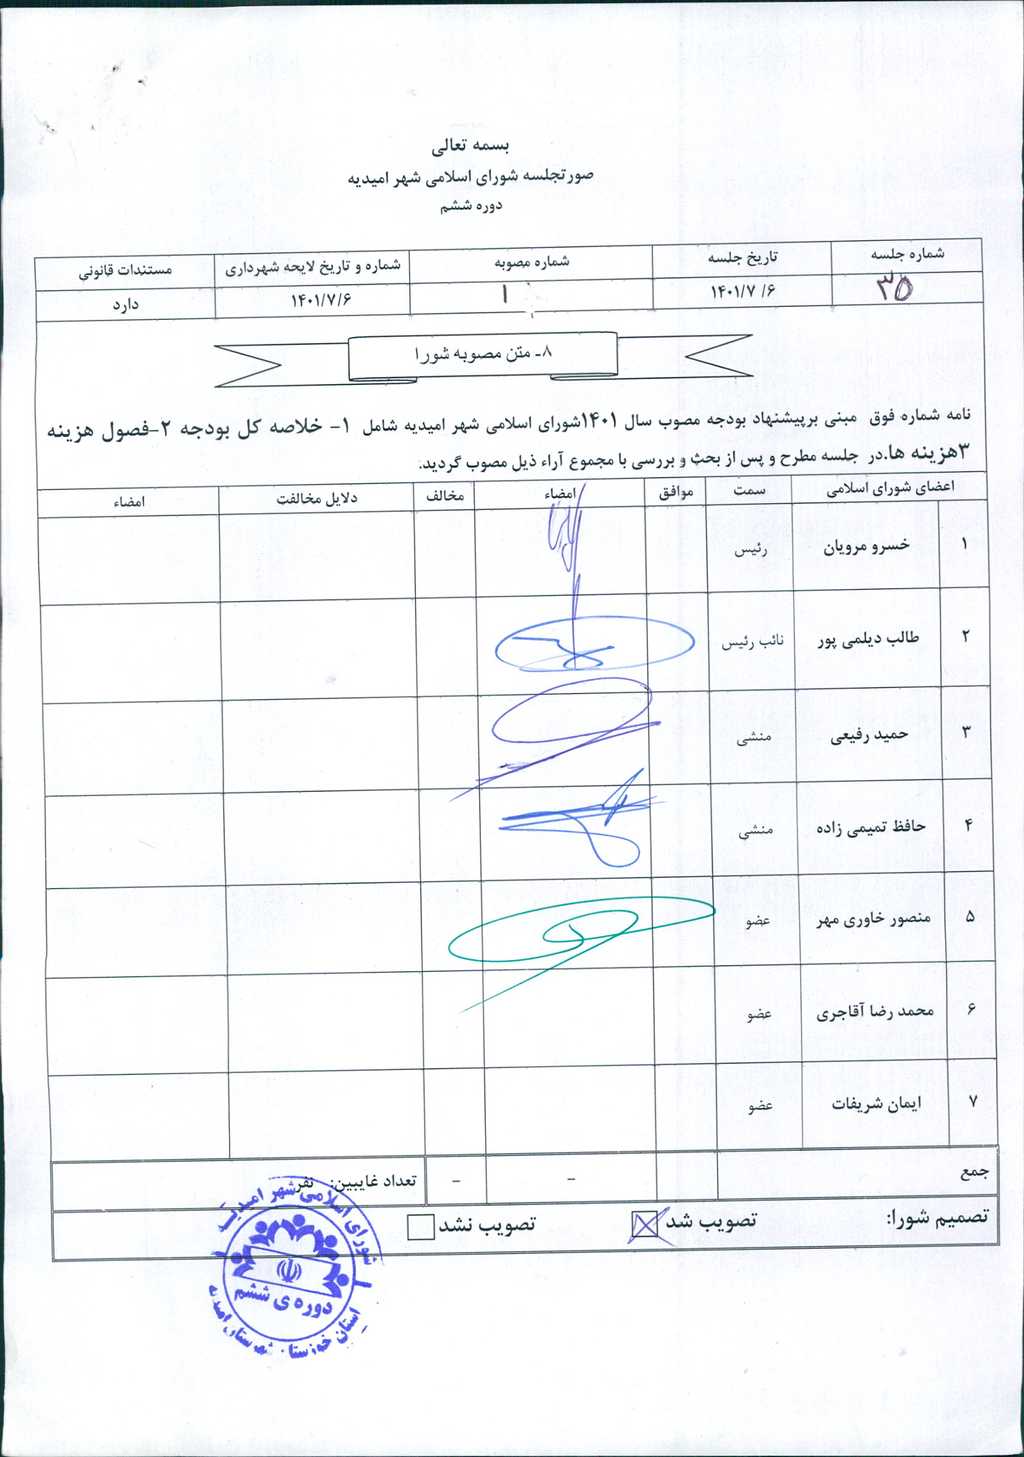 بسمه تعالی
صورتجلسه شورای اسلامی شهر امیدیه
دوره ششم
شماره جلسه تاریخ جلسه شماره مصوبه شماره و تاریخ لایحه شهرداری مستندات قانونی
۳۵ ۱۴۰۱/۷/۶ ۱ ۱۴۰۱/۷/۶ دارد
۸- متن مصوبه شورا
نامه شماره فوق مبنی برپیشنهاد بودجه مصوب سال ۱۴۰۱شورای اسلامی شهر امیدیه شامل ۱- خلاصه کل بودجه ۲-فصول هزینه
۳هزینه ها.در جلسه مطرح و پس از بحث و بررسی با مجموع آراء ذیل مصوب گردید.
اعضای شورای اسلامی سمت موافق امضاء مخالف دلایل مخالفت امضاء
۱ خسرو مرویان رئیس
۲ طالب دیلمی پور نائب رئیس
۳ حمید رفیعی منشی
۴ حافظ تمیمی زاده منشی
۵ منصور خاوری مهر عضو
۶ محمد رضا آقاجری عضو
۷ ایمان شریفات عضو
جمع - - تعداد غایبین: نفر
تصمیم شورا: تصویب شد تصویب نشد
شورای اسلامی شهر امیدیه
دوره ی ششم
استان خوزستان شهرستان امیدیه